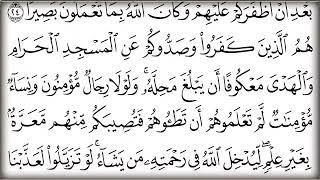 بَعْدِ أَنْ أَظْفَرَكُمْ عَلَيْهِمْ وَكَانَ ٱللَّهُ بِمَا تَعْمَلُونَ بَصِيرًا ٢٤
هُمُ ٱلَّذِينَ كَفَرُوا۟ وَصَدُّوكُمْ عَنِ ٱلْمَسْجِدِ ٱلْحَرَامِ
وَٱلْهَدْىَ مَعْكُوفًا أَن يَبْلُغَ مَحِلَّهُۥ ۚ وَلَوْلَا رِجَالٌ مُّؤْمِنُونَ وَنِسَآءٌ
مُّؤْمِنَٰتٌ لَّمْ تَعْلَمُوهُمْ أَن تَطَـُٔوهُمْ فَتُصِيبَكُم مِّنْهُم مَّعَرَّةٌۢ
بِغَيْرِ عِلْمٍ ۖ لِّيُدْخِلَ ٱللَّهُ فِى رَحْمَتِهِۦ مَن يَشَآءُ ۚ لَوْ تَزَيَّلُوا۟ لَعَذَّبْنَا